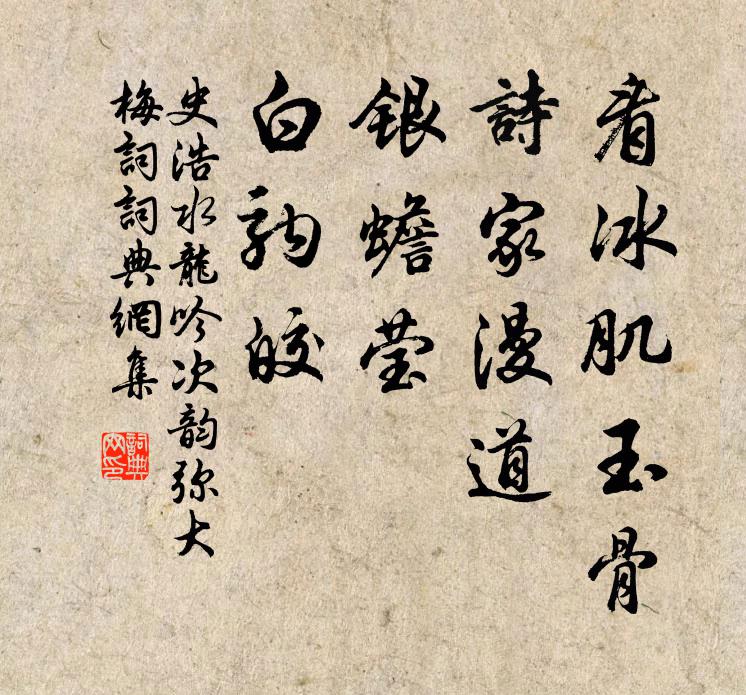 看冰肌玉骨
詩家漫道
銀蟾瑩
白駒皎
史浩水龍吟次韵弥大
梅詞詞典網集
詞典
网印